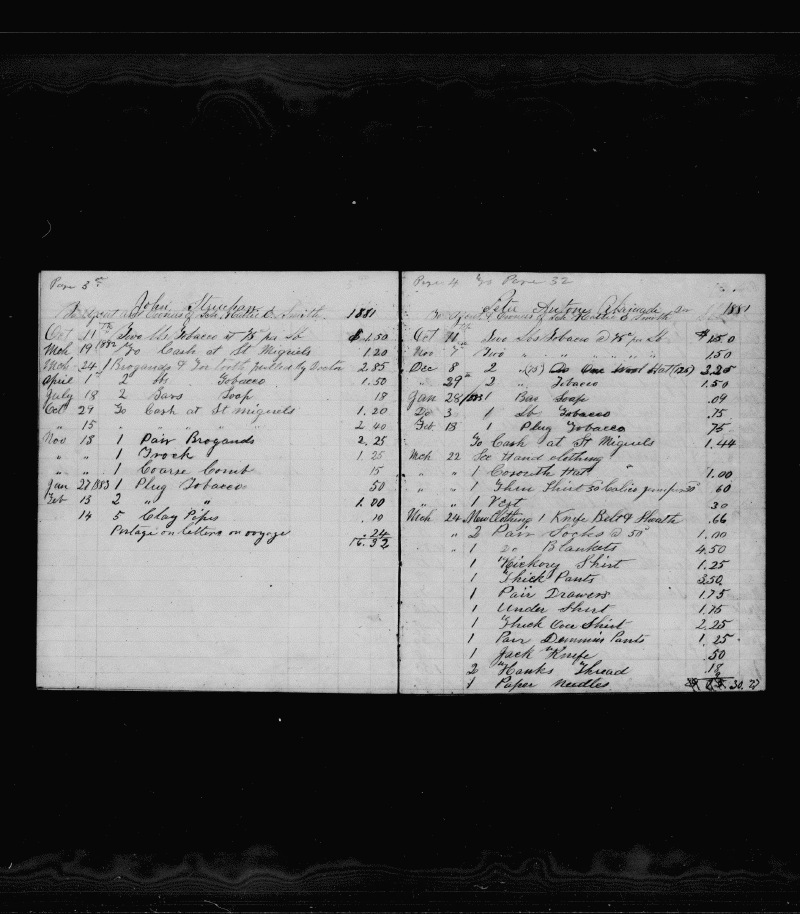 Page 3
John
To Agent and Owners of Sch. E. Smith. 1881
Oct 11th Two lbs Tobacco at 75c per lb $1.50
Mch 19 1882 To Cash at St Miguels 1.20
Mch 24 1 Brogands & for tooth by Doctor 2.85
April 1st 2 lbs Tobacco 1.50
July 18 2 Bars Soap 18
Oct 29 To Cash at St Miguels 1.20
" 15 " " " " " 2 40
Nov 18 1 Pair Brogands 2.25
" " 1 Frock 1.25
" " 1 Coarse Comb 15
Jan 27 1883 1 Plug Tobacco 50
Feb 13 2 " " 1.00
14 5 Clay Pipes .10
Postage on letters on voyage .24
16.32
Page 4 To Page 32
Antone 1881
To Agent & Owners of Sch E Smith
Oct 11th Two Lbs Tobacco @ 75c per lb $1.50
Nov 7 Two " " " " " 1.50
Dec 8 2 " (75) Do One Wool Hat (125) 2.25
" 29th 2 " Tobacco 1.50
Jan 28 1883 1 Bar Soap .09
Do 3 1 lb Tobacco .75
Feb 13 1 Plug Tobacco 75
To Cash at St Miguels 1.44
Mch 22 Sec Hand clothing
" " 1 Hat " 1.00
" " 1 Thin Shirt 30 Calico jumper 30 60
" " 1 Vest 30
Mch 24 New Clothing 1 Knife Belt & Sheath .66
" 2 Pair Socks @ 50c 1.00
" 1 Do Blankets 4.50
1 Hickory Shirt 1.25
1 Thick Pants 2.50
1 Pair Drawers 1.75
1 Under Shirt 1.75
1 Thick Over Shirt 2.25
1 Pair Demmins Pants 1.25
1 Jack Knife 50
2 Hanks Thread .18
1 Paper Needles